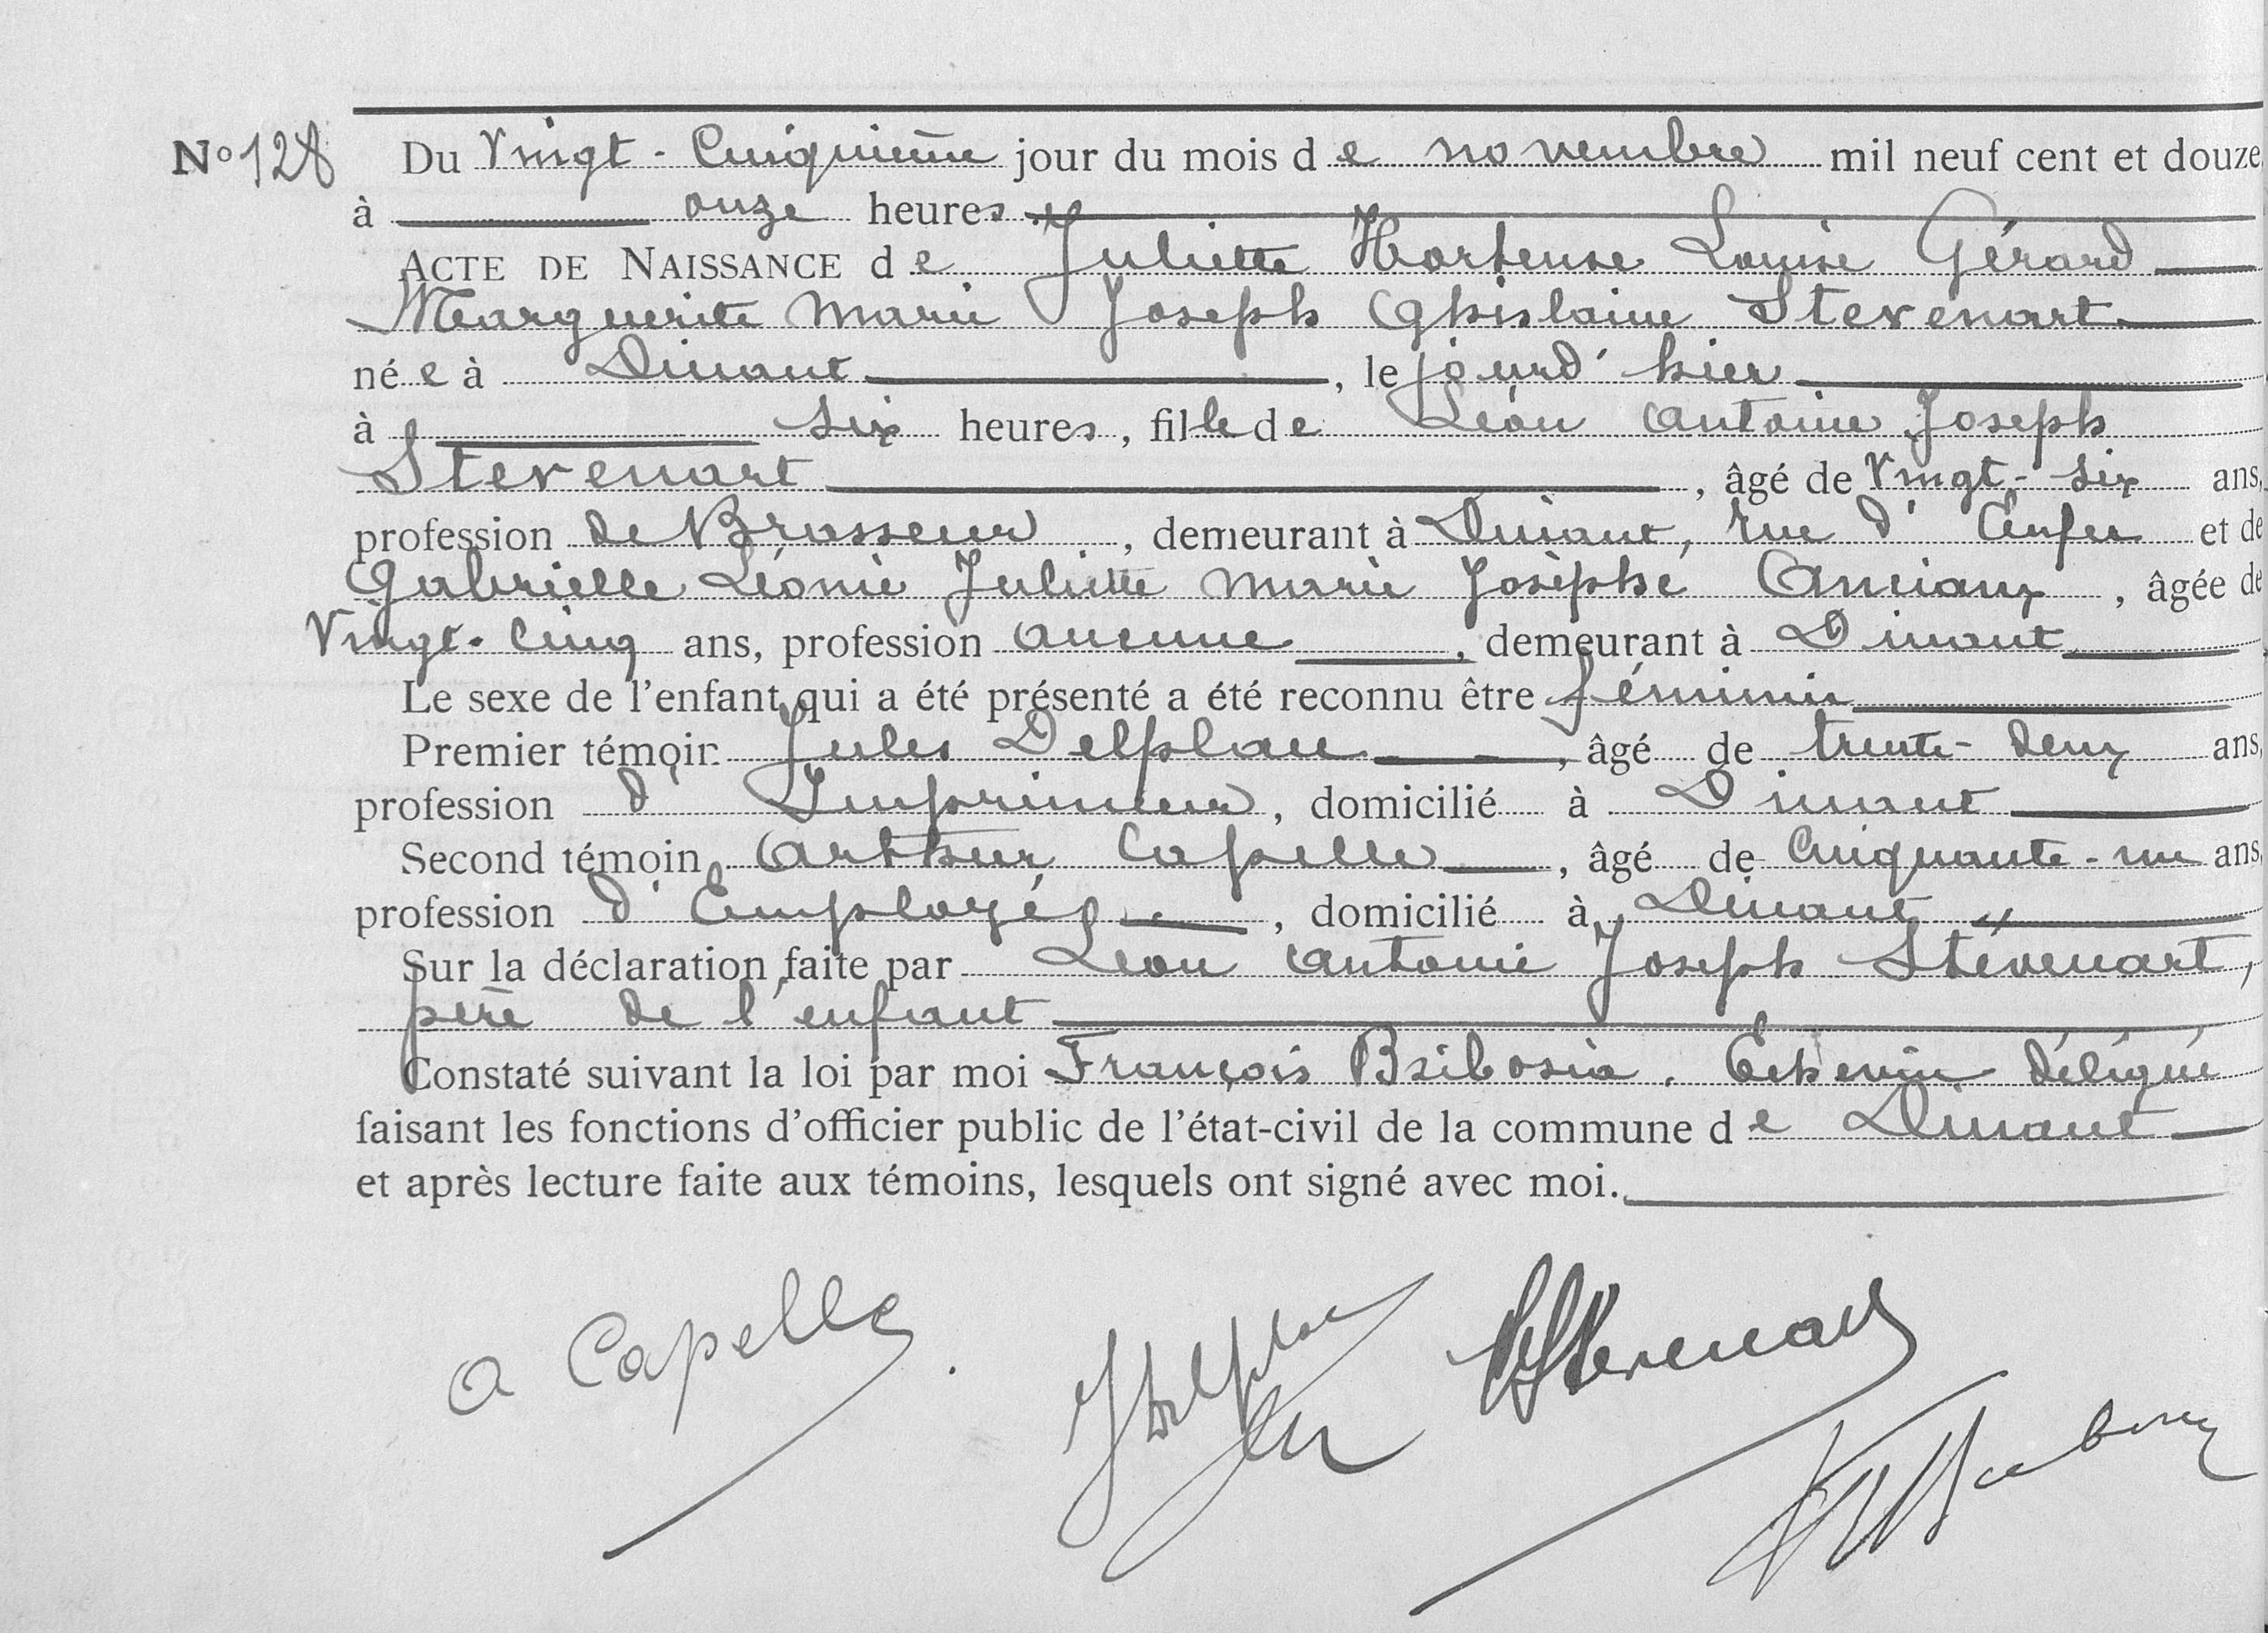 N° 128 Du Vingt-Cinquième jour du mois de novembre mil neuf cent et douze
à onze heures
ACTE DE NAISSANCE de Juliette Hortense Louise Gérard
Marguerite Marie Joseph Ghislaine Stevenart
née à Dinant, le jourd'hier
à six heures, fille de Léon Antoine Joseph
Stevenart, âgé de Vingt-six ans,
profession de Brasseur, demeurant à Dinant, rue d'Enfer et de
Gabrielle Léonie Juliette Marie Josèphe Anciaux, âgée de
Vingt-Cinq ans, profession aucune, demeurant à Dinant
Le sexe de l'enfant qui a été présenté a été reconnu être féminin
Premier témoin Jules Delplace, âgé de trente-deux ans,
profession d'Imprimeur, domicilié à Dinant
Second témoin Arthur Capelle, âgé de Cinquante-un ans,
profession d'Employé, domicilié à Dinant
Sur la déclaration faite par Léon Antoine Joseph Stévenart,
père de l'enfant
Constaté suivant la loi par moi François Bribosia, Echevin délégué
faisant les fonctions d'officier public de l'état-civil de la commune de Dinant
et après lecture faite aux témoins, lesquels ont signé avec moi.
A Capelle. JDelplace Stevenart